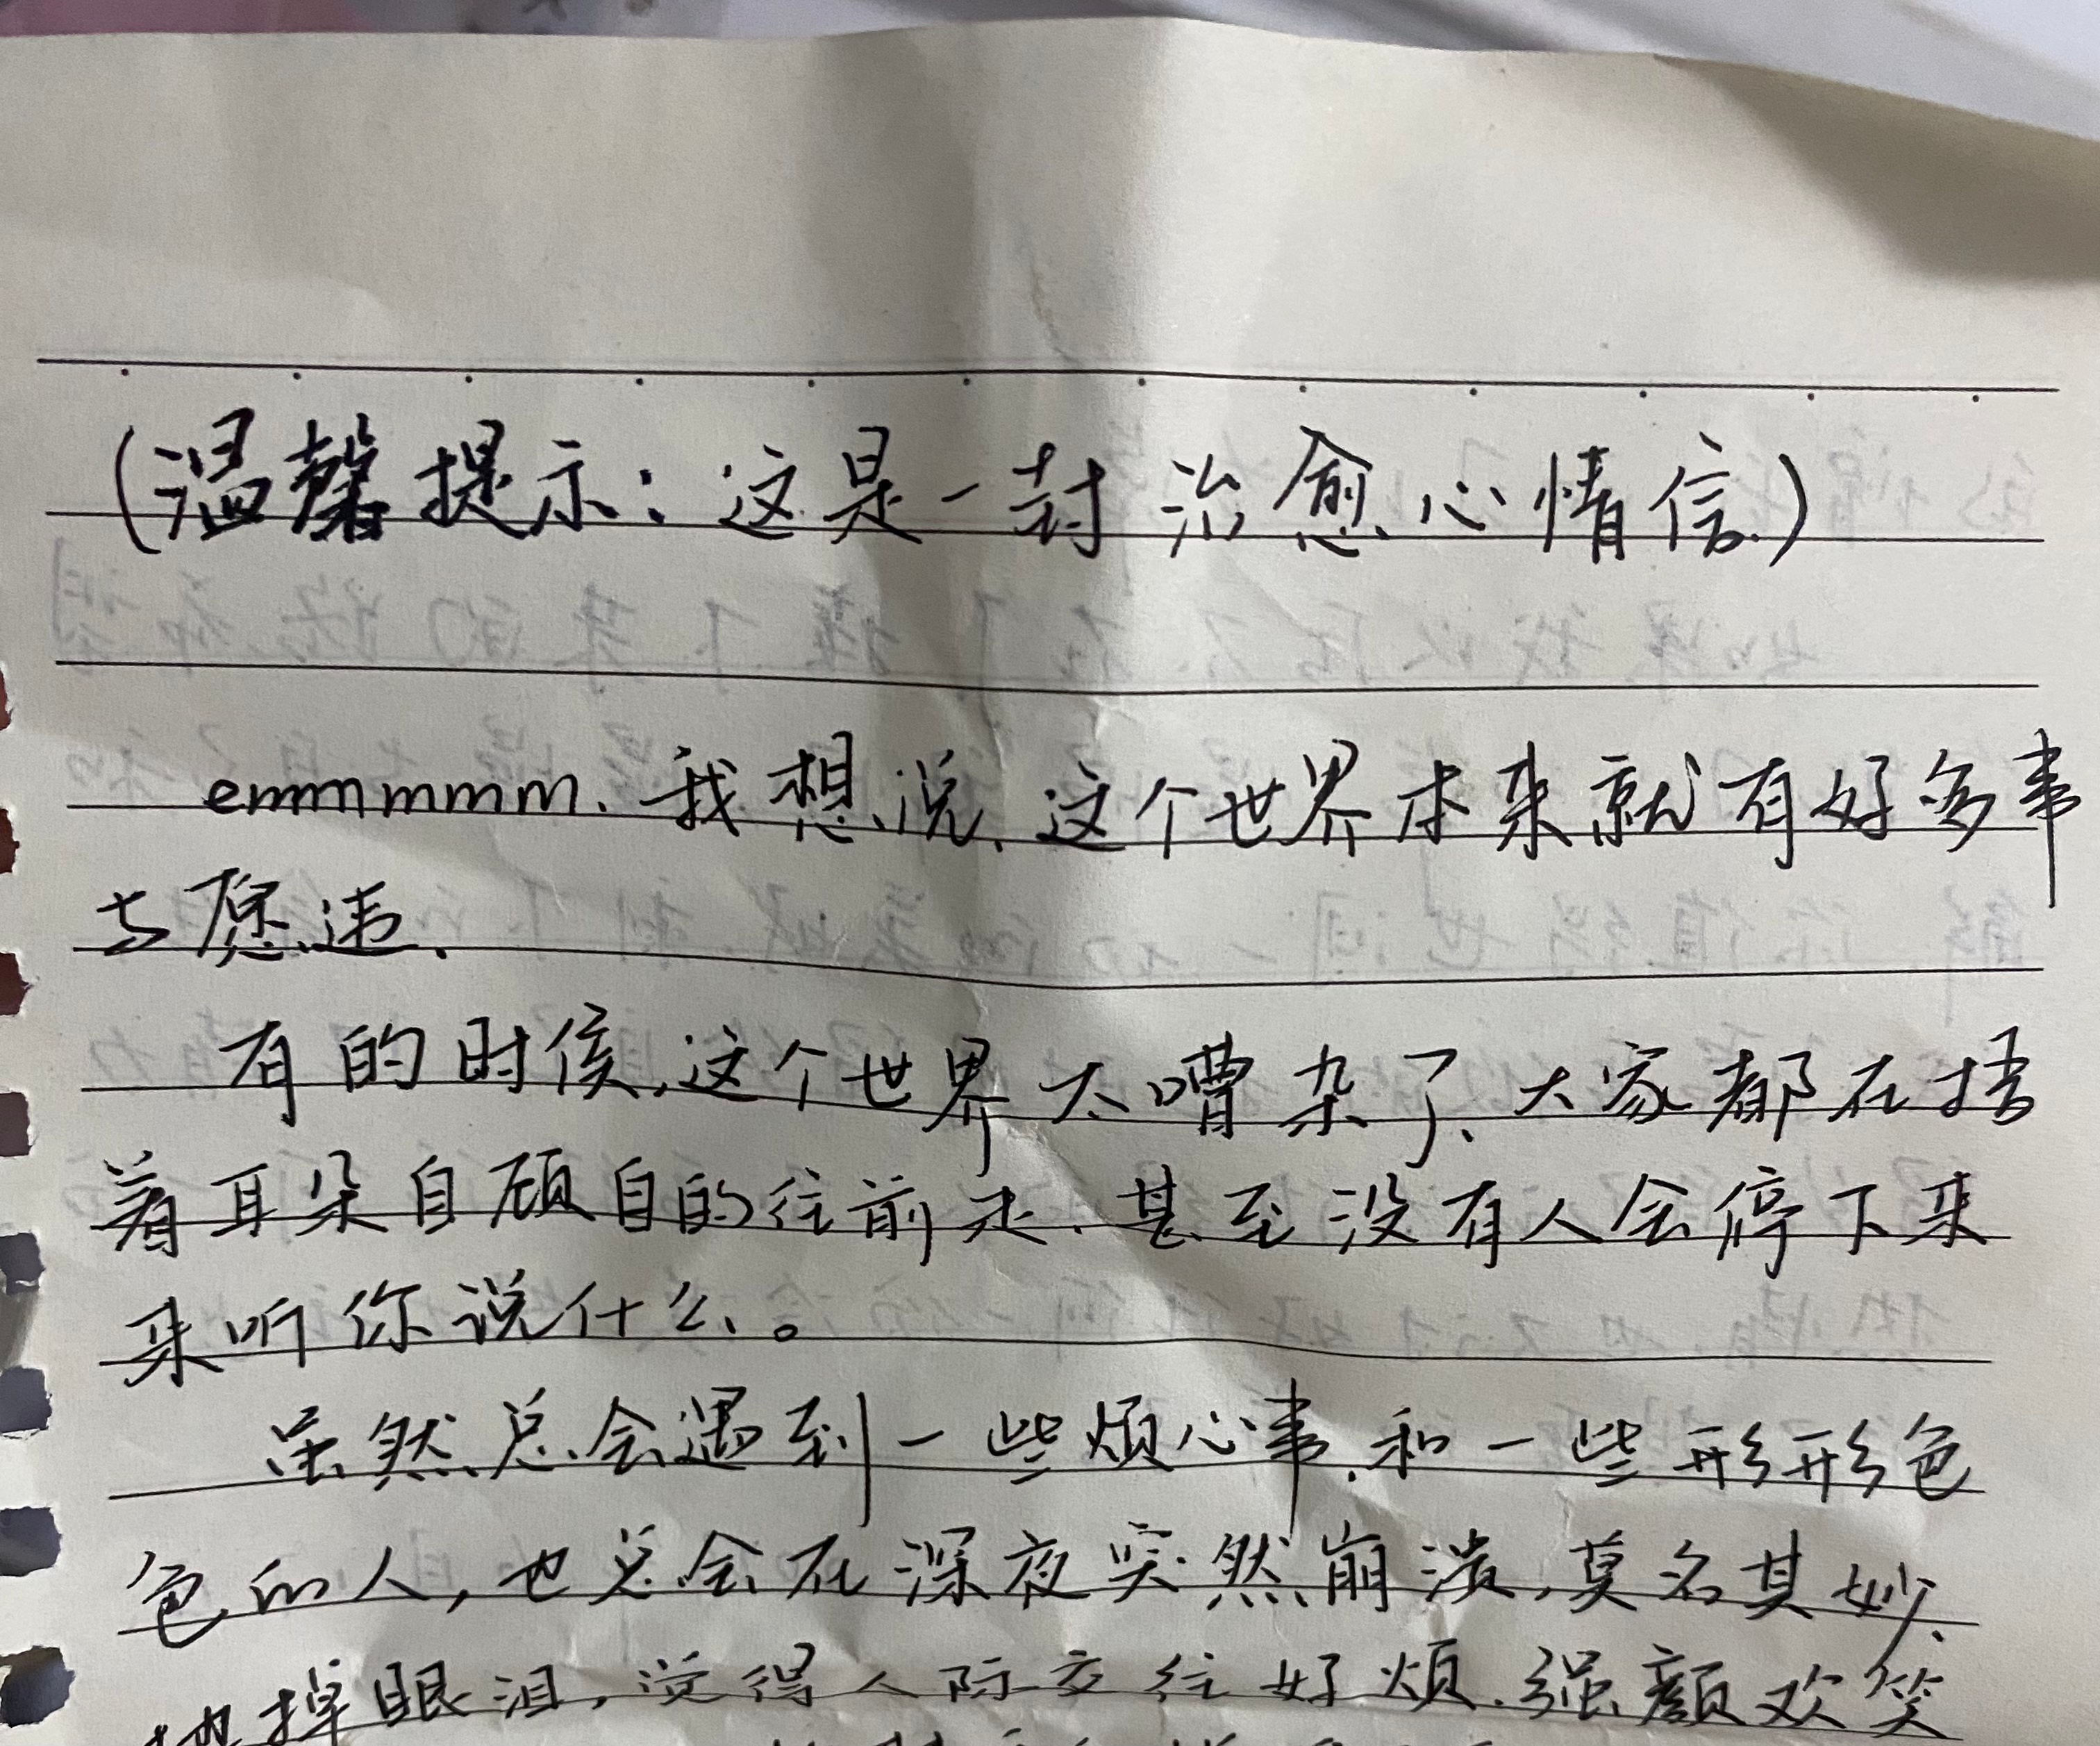 (温馨提示：这是一封治愈心情信.)
emmmmmm. 我想说, 这个世界本来就有好多事
与愿违.
有的时候,这个世界太嘈杂了、大家都在捂
着耳朵自顾自的往前走.甚至没有人会停下来
来听你说什么。
虽然总会遇到一些烦心事.和一些形形色
色的人，也总会在深夜突然崩溃,莫名其妙、
地掉眼泪，觉得人际交往好烦.强颜欢笑